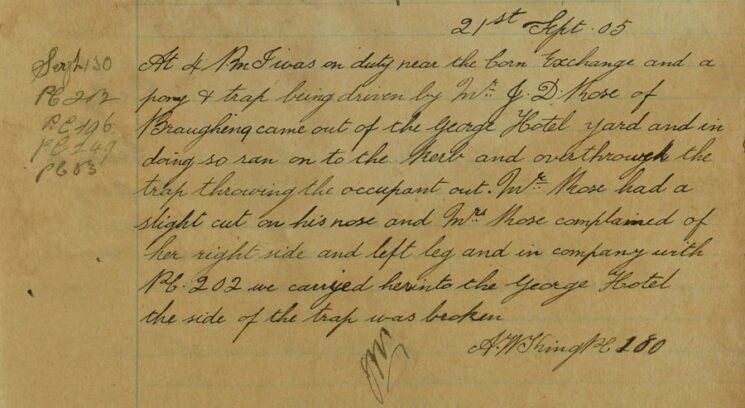 21st Sept. 05
Sergt 30
PC 202
PC 196
PC 249
PC 83
At 4 Pm I was on duty near the Corn Exchange and a
pony & trap being driven by Mr. J. D. Rose of
Braughenq came out of the George Hotel yard and in
doing so ran on to the Kerb and overthrough the
trap throwing the occupant out. Mr. Rose had a
slight cut on his nose and Mrs Rose complained of
her right side and left leg and in company with
P.C. 202 we carried her into the George Hotel
the side of the trap was broken
A. W. King PC 180